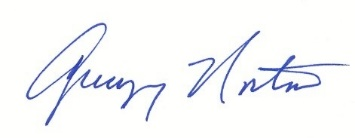 Gregory Norton